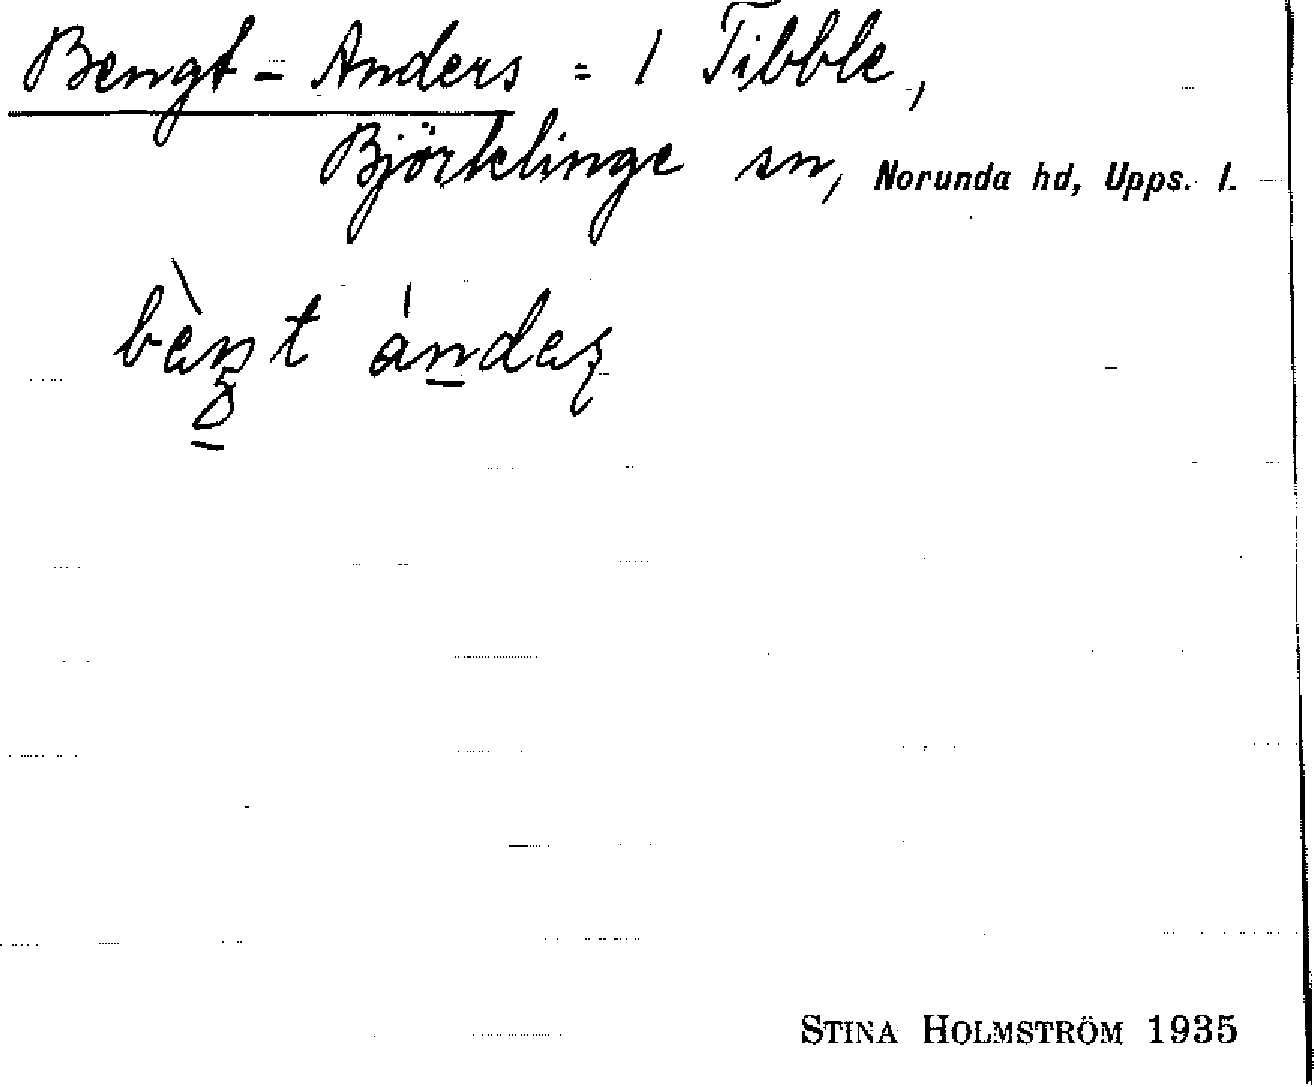 Bengt-Anders = 1 Tibble,
Björklinge sn, Norunda hd, Upps. l.
STINA HOLMSTRÖM 1935